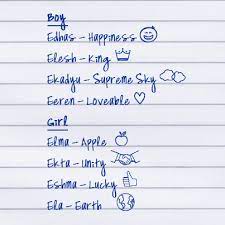 Boy
Edhas – Happiness
Elesh – King
Ekadyu – Supreme Sky
Eeren – Loveable
Girl
Elma – Apple
Ekta – Unity
Eshma – Lucky
Ela – Earth